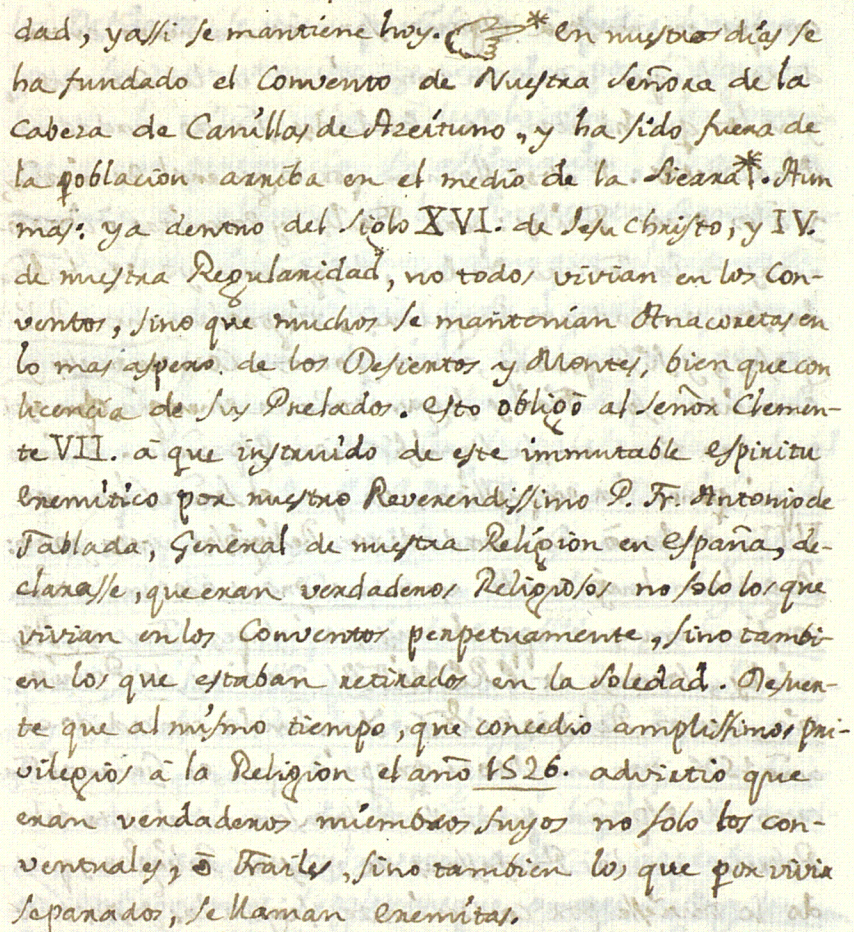 dad, y assi se mantiene hoy. * en nuestros días se
ha fundado el Convento de Nuestra Señora de la
Cabeza de Canillas de Azeituno, y ha sido fuera de
la poblacion arriba en el medio de la Sierra *. Aun
mas: ya dentro del siglo XVI. de Jesu Christo, y IV.
de nuestra Regularidad, no todos vivian en los Con-
ventos, sino que muchos se mantenian Anacoretas en
lo mas aspero de los Desiertos y Montes, bien que con
licencia de sus Prelados. Esto obligò al señor Clemen-
te VII. à que instruido de este immutable espiritu
eremitico por nuestro Reverendissimo P. Fr. Antonio de
Tablada, General de nuestra Religion en España, de-
clarasse, que eran verdaderos Religiosos no solo los que
vivian en los Conventos perpetuamente, sino tambi-
en los que estaban retirados en la Soledad. De suer-
te que al mismo tiempo, que concedio amplissimos pri-
vilegios à la Religion el año 1526. advirtio que
eran verdaderos miembros suyos no solo los con-
ventuales, ò Frailes, sino tambien los que por vivir
separados, se llaman eremitas.